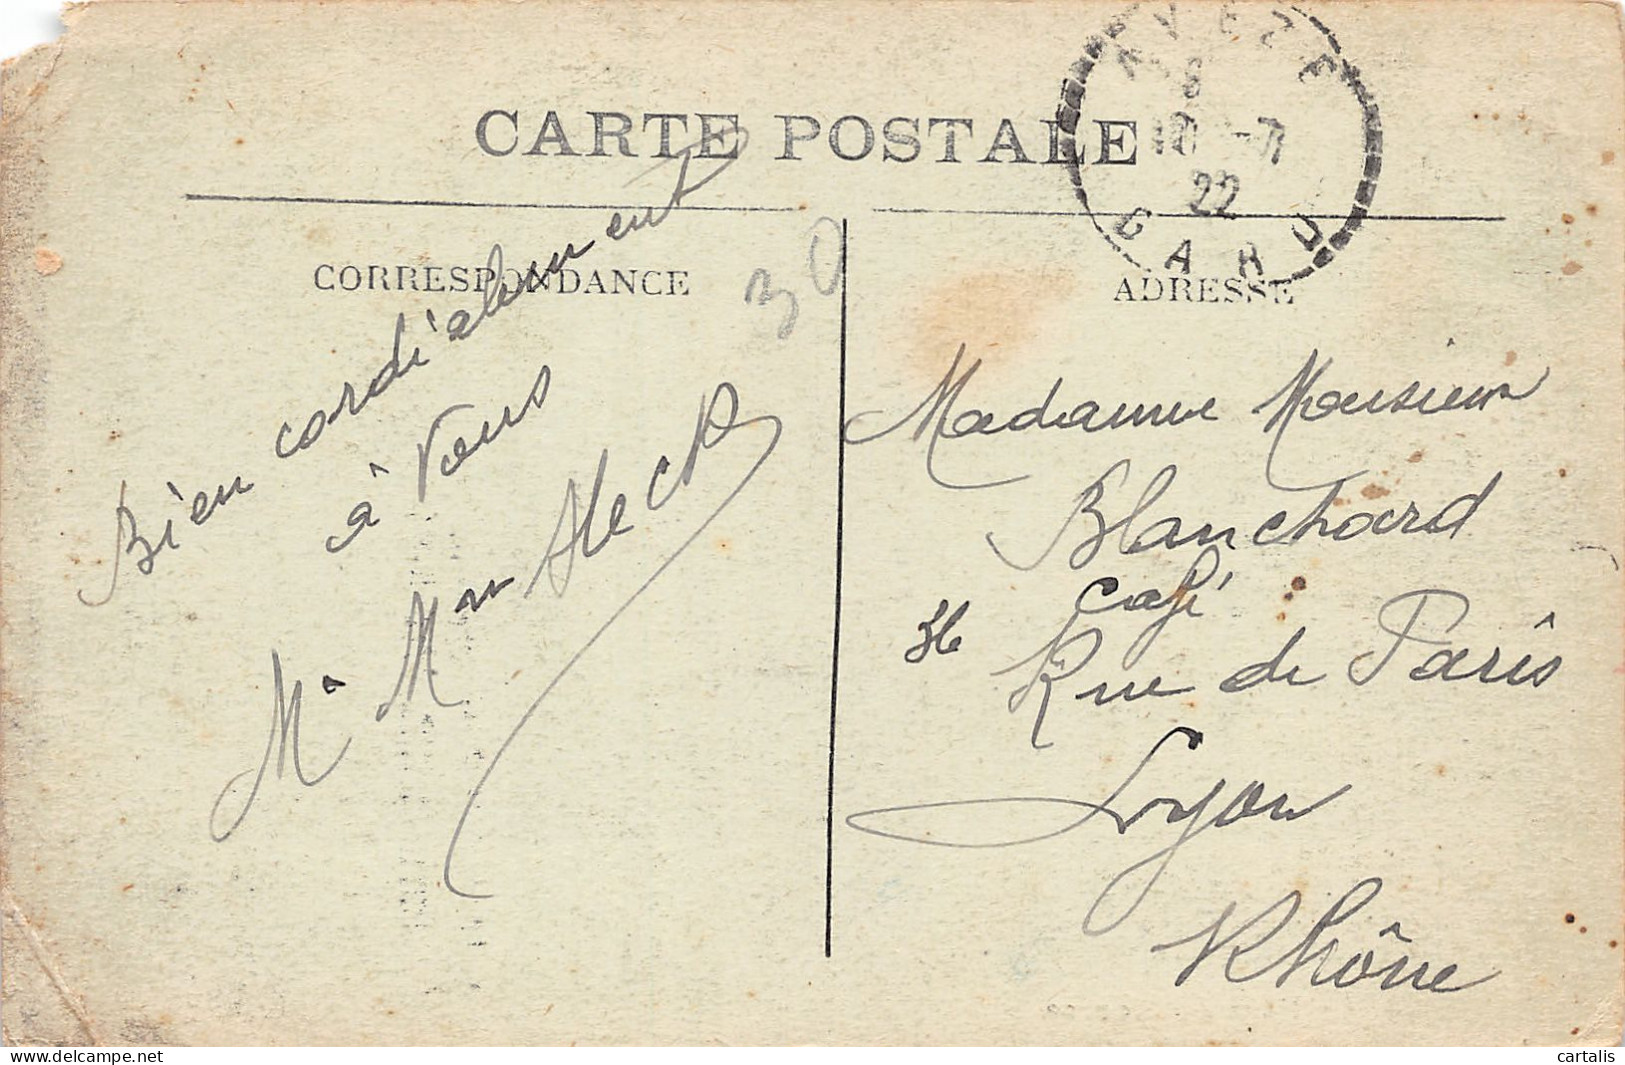 CARTE POSTALE
AVEZE
8
10 -7
22
GARD
CORRESPONDANCE
ADRESSE
30
Bien cordialement
à Vous
Mr Mme Heck
Madame Monsieur
Blanchard
café
36 Rue de Paris
Lyon
Rhône
www.delcampe.net
cartalis